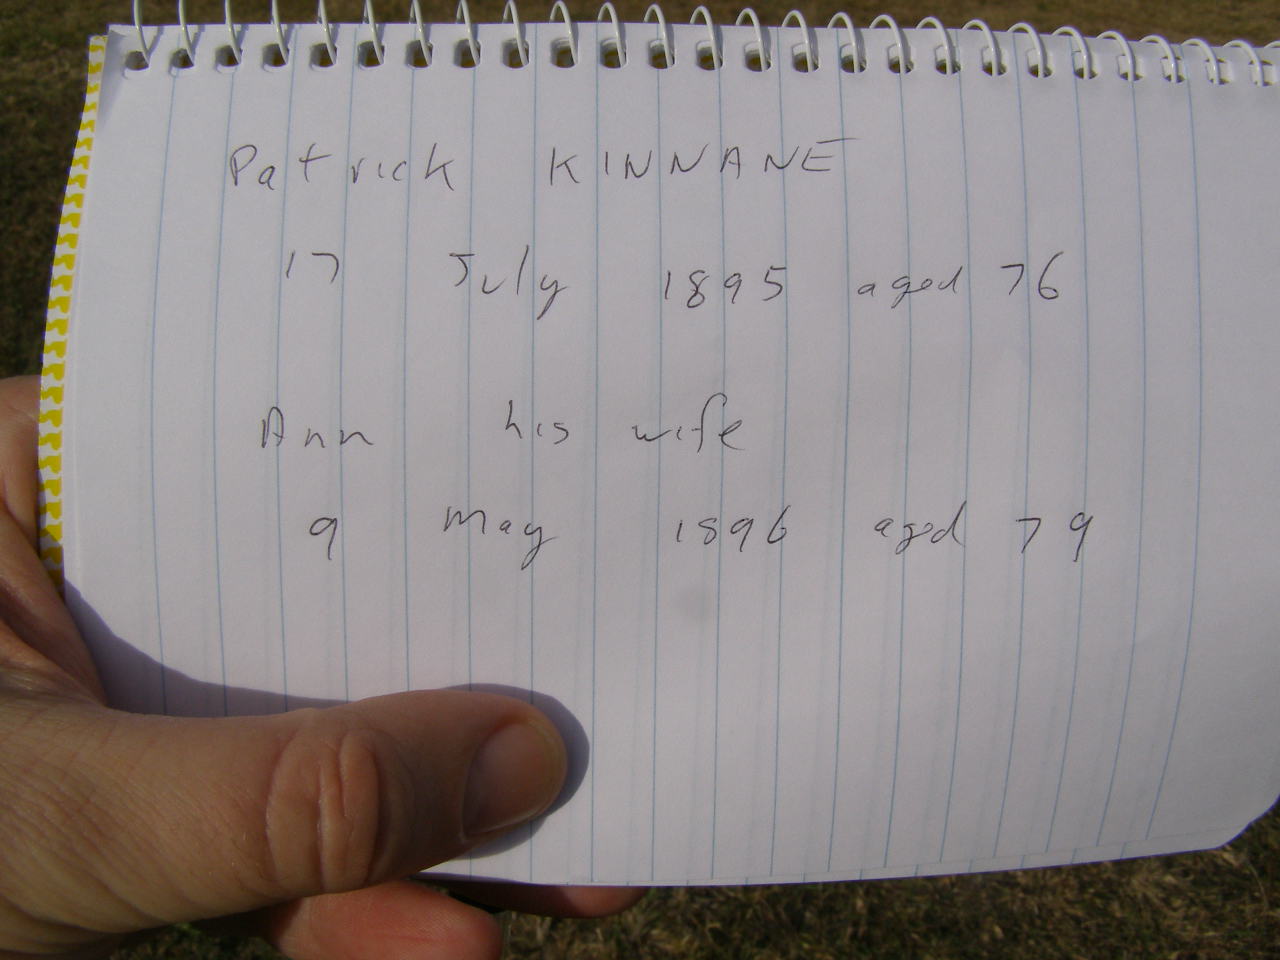 Patrick KINNANE
17 July 1895 aged 76
Ann his wife
9 May 1896 aged 79